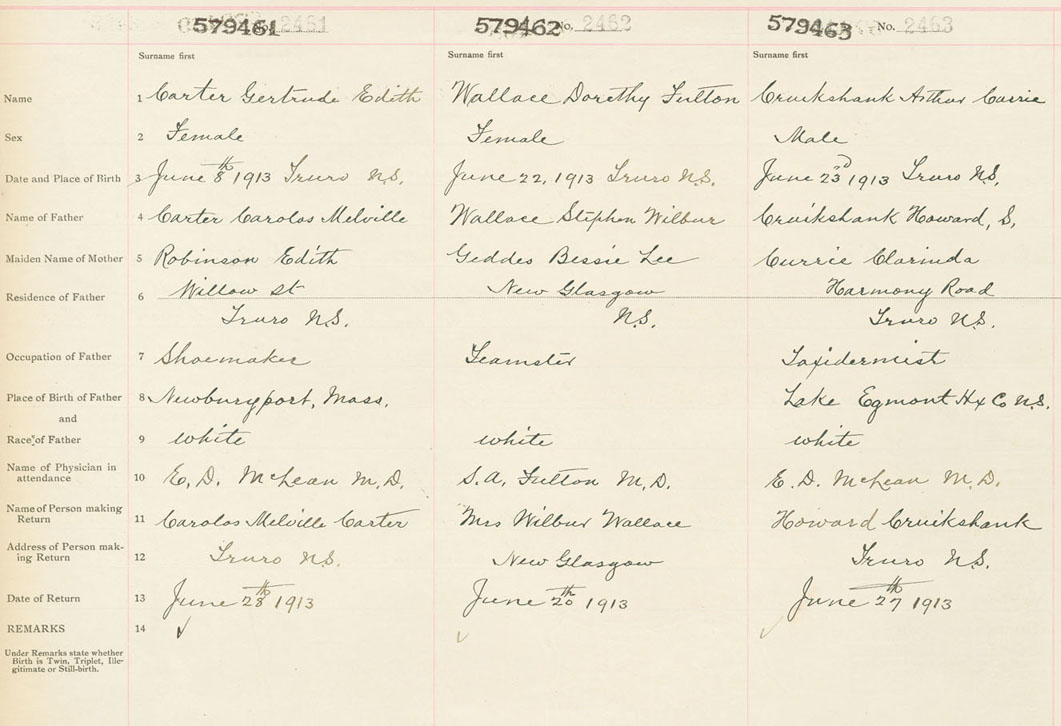 579461 No. 2461 579462 No. 2462 579463 No. 2463
Surname first Surname first Surname first
Name 1 Carter Gertrude Edith Wallace Dorothy Fulton Cruikshank Arthur Currie
Sex 2 Female Female Male
Date and Place of Birth 3 June 8th 1913 Truro N.S. June 22, 1913 Truro N.S. June 23d 1913 Truro N.S.
Name of Father 4 Carter Carolos Melville Wallace Stephen Wilbur Cruikshank Howard, S,
Maiden Name of Mother 5 Robinson Edith Geddes Bessie Lee Currie Clarinda
Residence of Father 6 Willow St New Glasgow Harmony Road
Truro N.S. N.S. Truro N.S.
Occupation of Father 7 Shoemaker Teamster Taxidermist
Place of Birth of Father 8 Newburyport, Mass. Lake Egmont Hx Co N.S.
and
Race of Father 9 white white white
Name of Physician in
attendance 10 E. D. McLean M.D. S. A. Fulton M.D. E. D. McLean M.D.
Name of Person making
Return 11 Carolos Melville Carter Mrs Wilbur Wallace Howard Cruikshank
Address of Person mak-
ing Return 12 Truro N.S. New Glasgow Truro N.S.
Date of Return 13 June 28th 1913 June 20th 1913 June 27th 1913
REMARKS 14 ✓ ✓ ✓
Under Remarks state whether
Birth is Twin, Triplet, Ille-
gitimate or Still-birth.